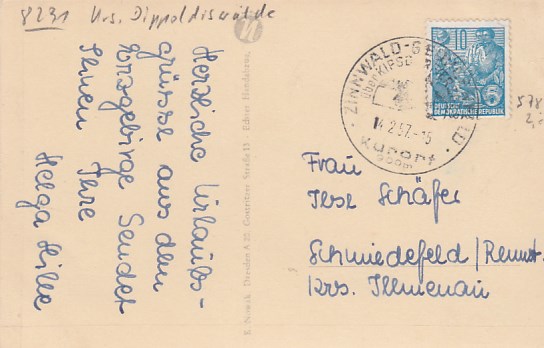 8231 Krs. Dippoldiswalde
Herzliche Urlaubs-
grüsse aus dem
Erzgebirge Sendet
Ihnen Ihre
Helga Hille
K. Nowak, Dresden A 27, Coschützer Straße 13 Echter Handabzug
ZINNWALD-GEORGENFELD
über KIPSDORF
14.2.57.-15
Kurort
900m
DEUTSCHE
DEMOKRATISCHE REPUBLIK
10
578
Frau
Ilse Schäfer
Schmiedefeld/Rennst.
Krs. Illmenau